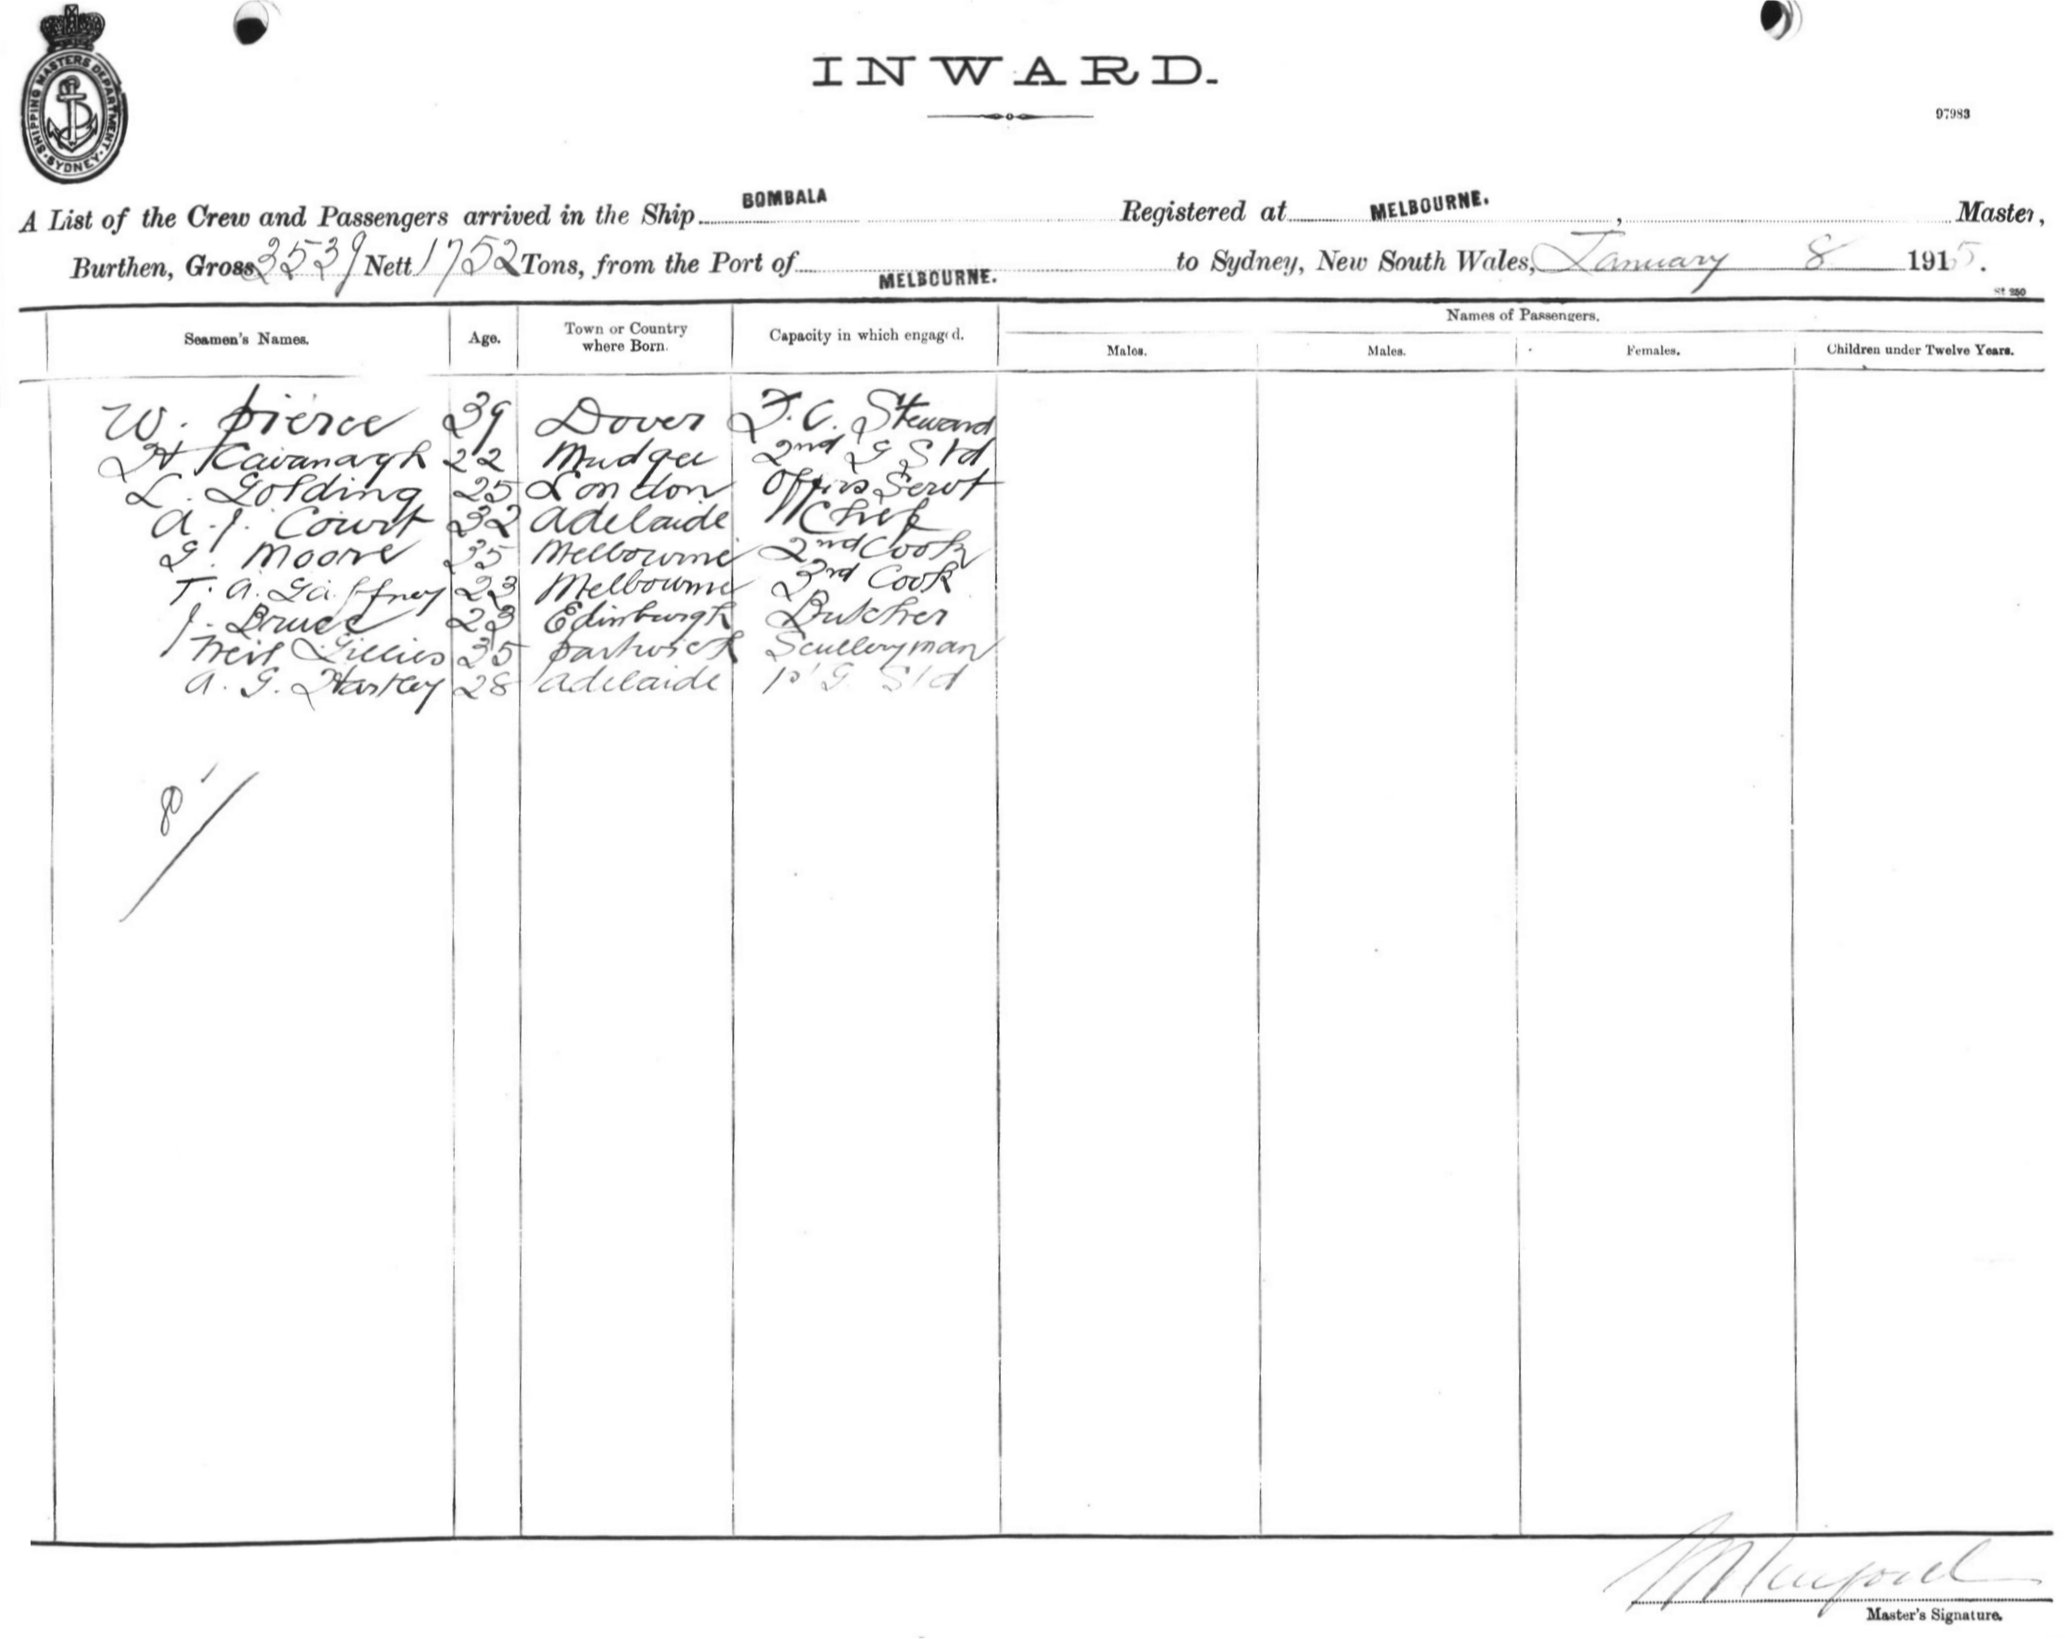 SHIPPING MASTERS DEPARTMENT · SYDNEY ·
INWARD.
97983
A List of the Crew and Passengers arrived in the Ship BOMBALA Registered at MELBOURNE. , Master,
Burthen, Gross 3539 Nett 1752 Tons, from the Port of MELBOURNE. to Sydney, New South Wales, January 8 1915.
St 250
Seamen's Names. Age. Town or Country where Born. Capacity in which engaged. Names of Passengers.
Males. Males. Females. Children under Twelve Years.
W. Pierce 39 Dover F.C. Steward
H Cavanagh 22 Mudgee 2nd G Std
L. Golding 25 London Offirs Servt
A. J. Court 32 Adelaide Chief
G. Moore 35 Melbourne 2nd Cook
T. A. Gaffney 23 Melbourne 3rd Cook
J. Bruce 23 Edinburgh Butcher
Neil Gillies 35 Partwick Sculleryman
A. G. Hartley 28 Adelaide 1st G. Std
Master's Signature.